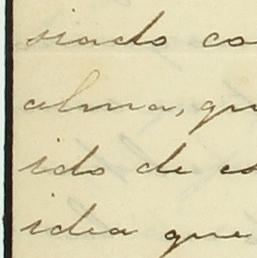 siado co
alma, qu
ido de es
idea que